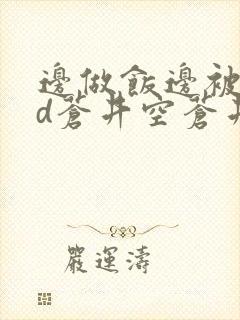 邊做飯邊被
d蒼井空蒼井
嚴運濤